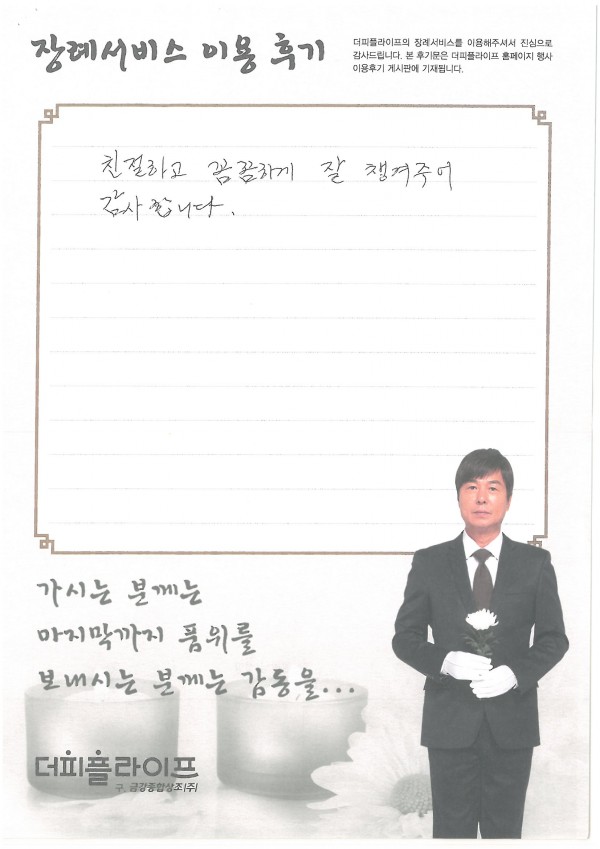 장례서비스 이용 후기
더피플라이프의 장례서비스를 이용해주셔서 진심으로
감사드립니다. 본 후기문은 더피플라이프 홈페이지 행사
이용후기 게시판에 기재됩니다.
친절하고 꼼꼼하게 잘 챙겨주어
감사합니다.
가시는 분께는
마지막까지 품위를
보내시는 분께는 감동을...
더피플라이프
구. 금강종합상조(주)